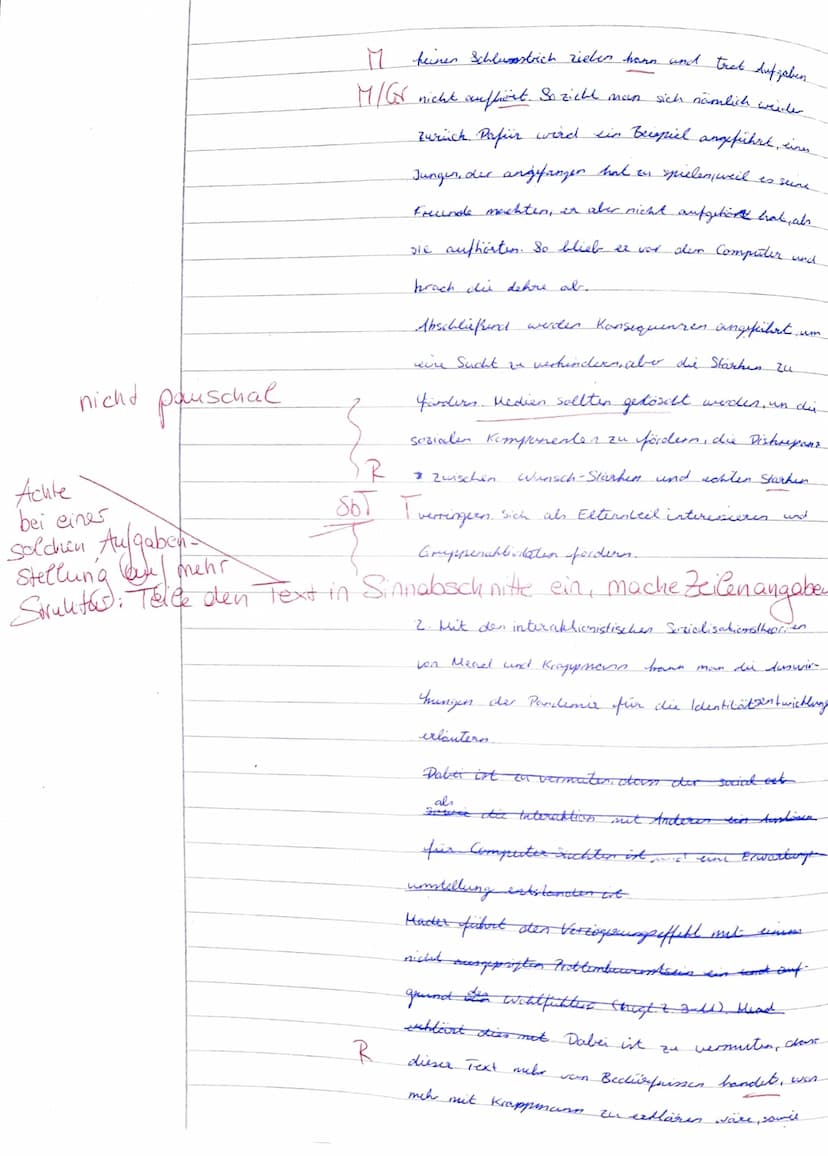 M keinen Schlussstrich ziehen kann und trotz Aufgaben
M/Gr nicht aufhört. So zieht man sich nämlich wieder
zurück. Dafür wird ein Beispiel angeführt, eines
Jungen, der angefangen hat zu spielen, weil es seine
Freunde machten, er aber nicht aufgehört hat, als
sie aufhörten. So blieb er vor dem Computer und
brach die Lehre ab.
Abschließend werden Konsequenzen angeführt um
eine Sucht zu verhindern, aber die Stärken zu
nicht pauschal fördern. Medien sollten gelöscht werden, um die
sozialen Komponenten zu fördern, die Diskrepanz
R zwischen Wunsch-Stärken und echten Starken
SbT T verringern sich als Elternteil interessieren und
Gruppenaktivitäten fördern.
Achte
bei einer
solchen Aufgaben-
stellung auf mehr
Struktur: Teile den Text in Sinnabschnitte ein, mache Zeilenangaben
2. Mit den interaktionistischen Sozialisationstheorien
von Mead und Krappmann kann man die Auswir-
kungen der Pandemie für die Identitätsentwicklung
erläutern.
Dabei ist zu vermuten, dass der social
als
sowie die Interaktion mit Anderen ein Auslöser
für Computer Süchten ist und eine Erwartungs
umstellung entstanden ist
Mader führt den Verzögerungseffekt mit einem
nicht ausgeprägten Problembewusstsein ein und auf-
grund des (vgl. Z. ). Mead
erklärt dies mit Dabei ist zu vermuten, dass
R dieser Text mehr von Bedürfnissen handet, was
mehr mit Krappmann zu erklären wäre, sowie